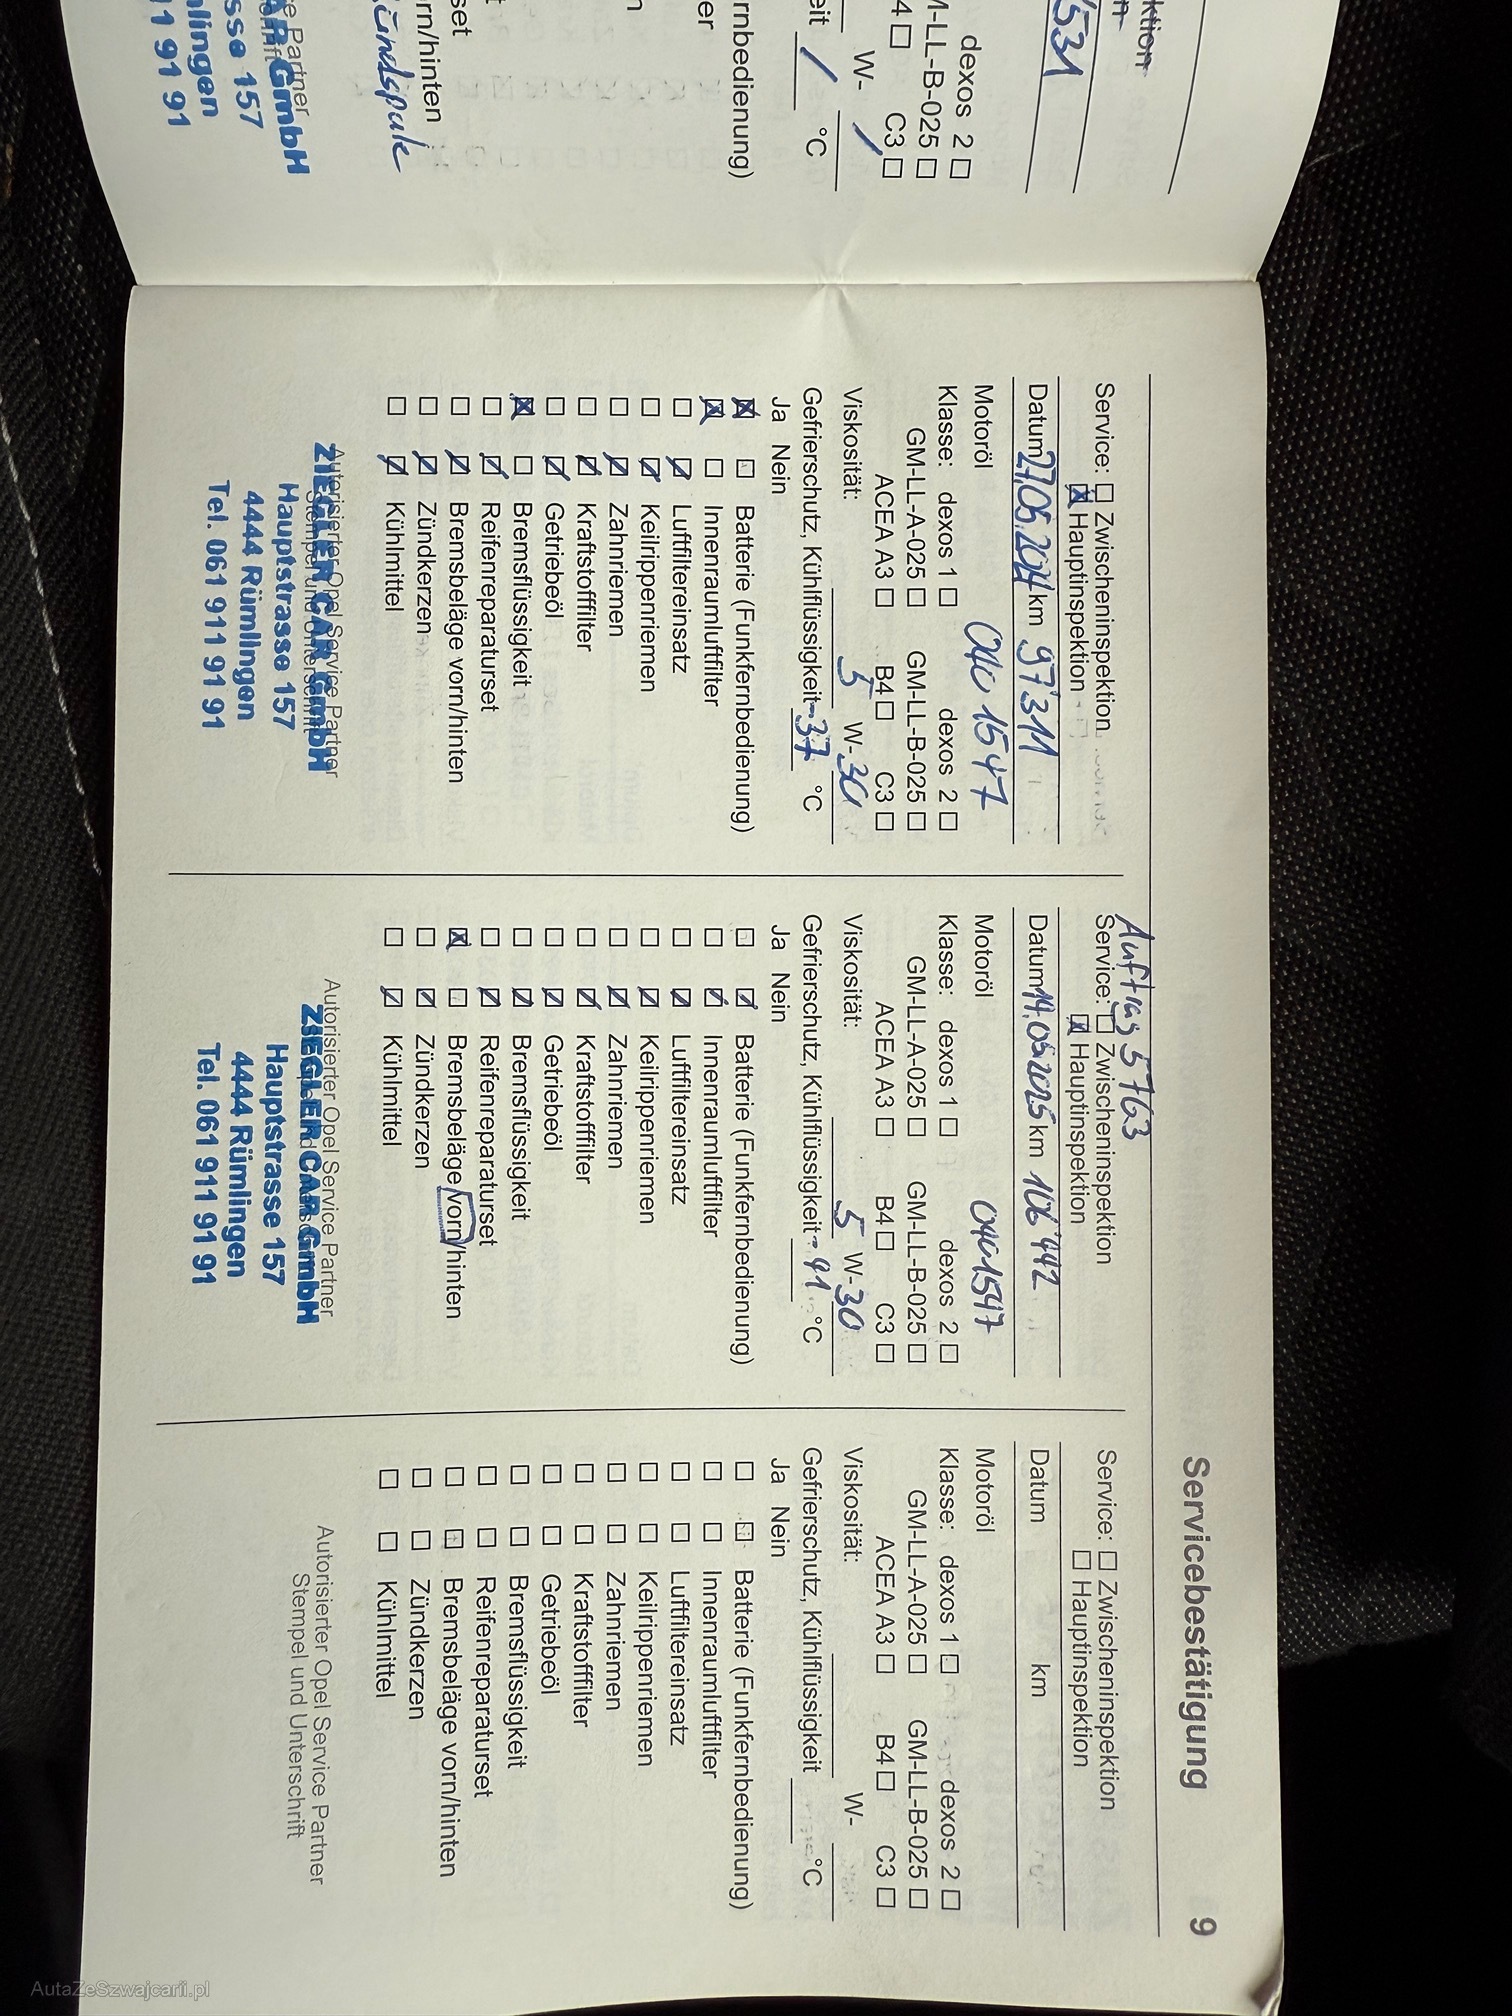 ktion
531
dexos 2
M-LL-B-025
4 C3
W- /
eit / °C
rnbedienung)
er
n
t
set
rn/hinten
Zündspule
e Partner
AR GmbH
sse 157
nlingen
11 91 91
Servicebestätigung 9
Service: Zwischeninspektion
Hauptinspektion
Datum 27.05.2024 km 97'311
Motoröl OAC 1547
Klasse: dexos 1 dexos 2
GM-LL-A-025 GM-LL-B-025
ACEA A3 B4 C3
Viskosität: 5 W-30
Gefrierschutz, Kühlflüssigkeit -37 °C
Ja Nein
Batterie (Funkfernbedienung)
Innenraumluftfilter
Luftfiltereinsatz
Keilrippenriemen
Zahnriemen
Kraftstofffilter
Getriebeöl
Bremsflüssigkeit
Reifenreparaturset
Bremsbeläge vorn/hinten
Zündkerzen
Kühlmittel
Autorisierter Opel Service Partner
Stempel und Unterschrift
ZIEGLER CAR GmbH
Hauptstrasse 157
4444 Rümlingen
Tel. 061 911 91 91
Auftrag 5763
Service: Zwischeninspektion
Hauptinspektion
Datum 14.05.2025 km 106'442
Motoröl OAC1547
Klasse: dexos 1 dexos 2
GM-LL-A-025 GM-LL-B-025
ACEA A3 B4 C3
Viskosität: 5 W-30
Gefrierschutz, Kühlflüssigkeit -41 °C
Ja Nein
Batterie (Funkfernbedienung)
Innenraumluftfilter
Luftfiltereinsatz
Keilrippenriemen
Zahnriemen
Kraftstofffilter
Getriebeöl
Bremsflüssigkeit
Reifenreparaturset
Bremsbeläge vorn/hinten
Zündkerzen
Kühlmittel
Autorisierter Opel Service Partner
ZIEGLER CAR GmbH
Hauptstrasse 157
4444 Rümlingen
Tel. 061 911 91 91
Service: Zwischeninspektion
Hauptinspektion
Datum km
Motoröl
Klasse: dexos 1 dexos 2
GM-LL-A-025 GM-LL-B-025
ACEA A3 B4 C3
Viskosität: W-
Gefrierschutz, Kühlflüssigkeit °C
Ja Nein
Batterie (Funkfernbedienung)
Innenraumluftfilter
Luftfiltereinsatz
Keilrippenriemen
Zahnriemen
Kraftstofffilter
Getriebeöl
Bremsflüssigkeit
Reifenreparaturset
Bremsbeläge vorn/hinten
Zündkerzen
Kühlmittel
Autorisierter Opel Service Partner
Stempel und Unterschrift
AutaZeSzwajcarii.pl